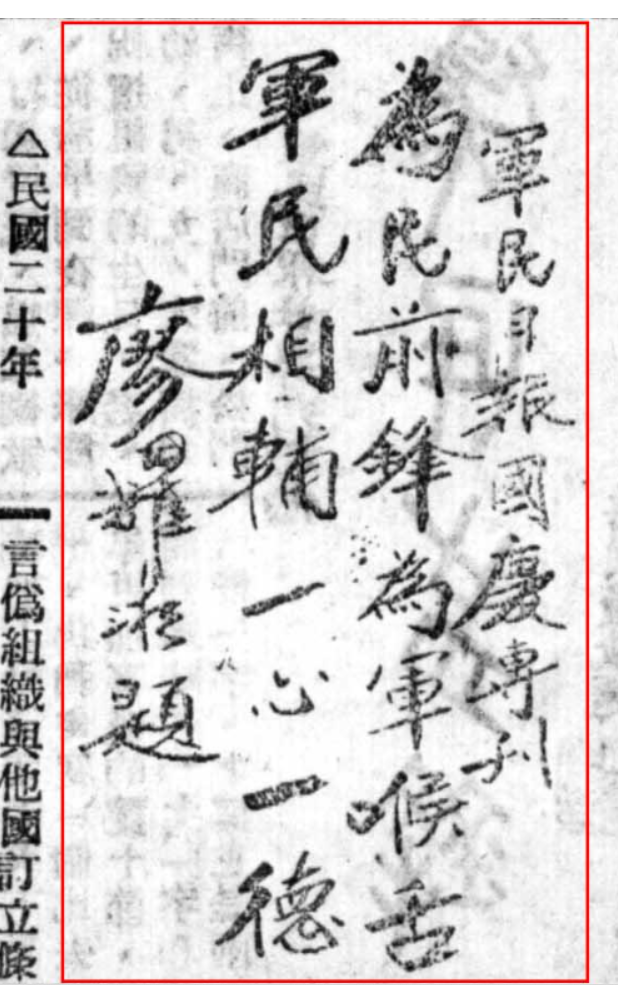 軍民日報國慶專刊
為民前鋒為軍喉舌
軍民相輔一心一德
廖羅淑題
△民國二十年
言僞組織與他國訂立條